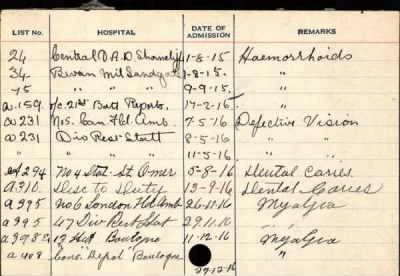 LIST No. HOSPITAL DATE OF ADMISSION REMARKS
24 Central V A D. Shorncliff 1-8-15 Haemorrhoids
34 Bevan Mil Sandgate 1-8-15. "
75 9-9-15. "
a159. o/c. 21st Batt Reports. 17-2-16 "
a231 No 5. Can Fld. Amb. 7-5-16 Defective Vision
a231 Div Rest Statt 8-5-16 "
" " 11-5-16 "
a294 No 4 Stat. St. Omer 5-8-16 Dental Caries
A310. Disc to Duty 13-9-16 Dental Caries
a395 No 6 London Fld Amb 26-11-16 Myalgia
a395 47 Div Rest Stat 29.11.16 "
a398 Boulogne 11-12-16 Myalgia
a408 Conv. Depot Boulogne 27-12-16 "